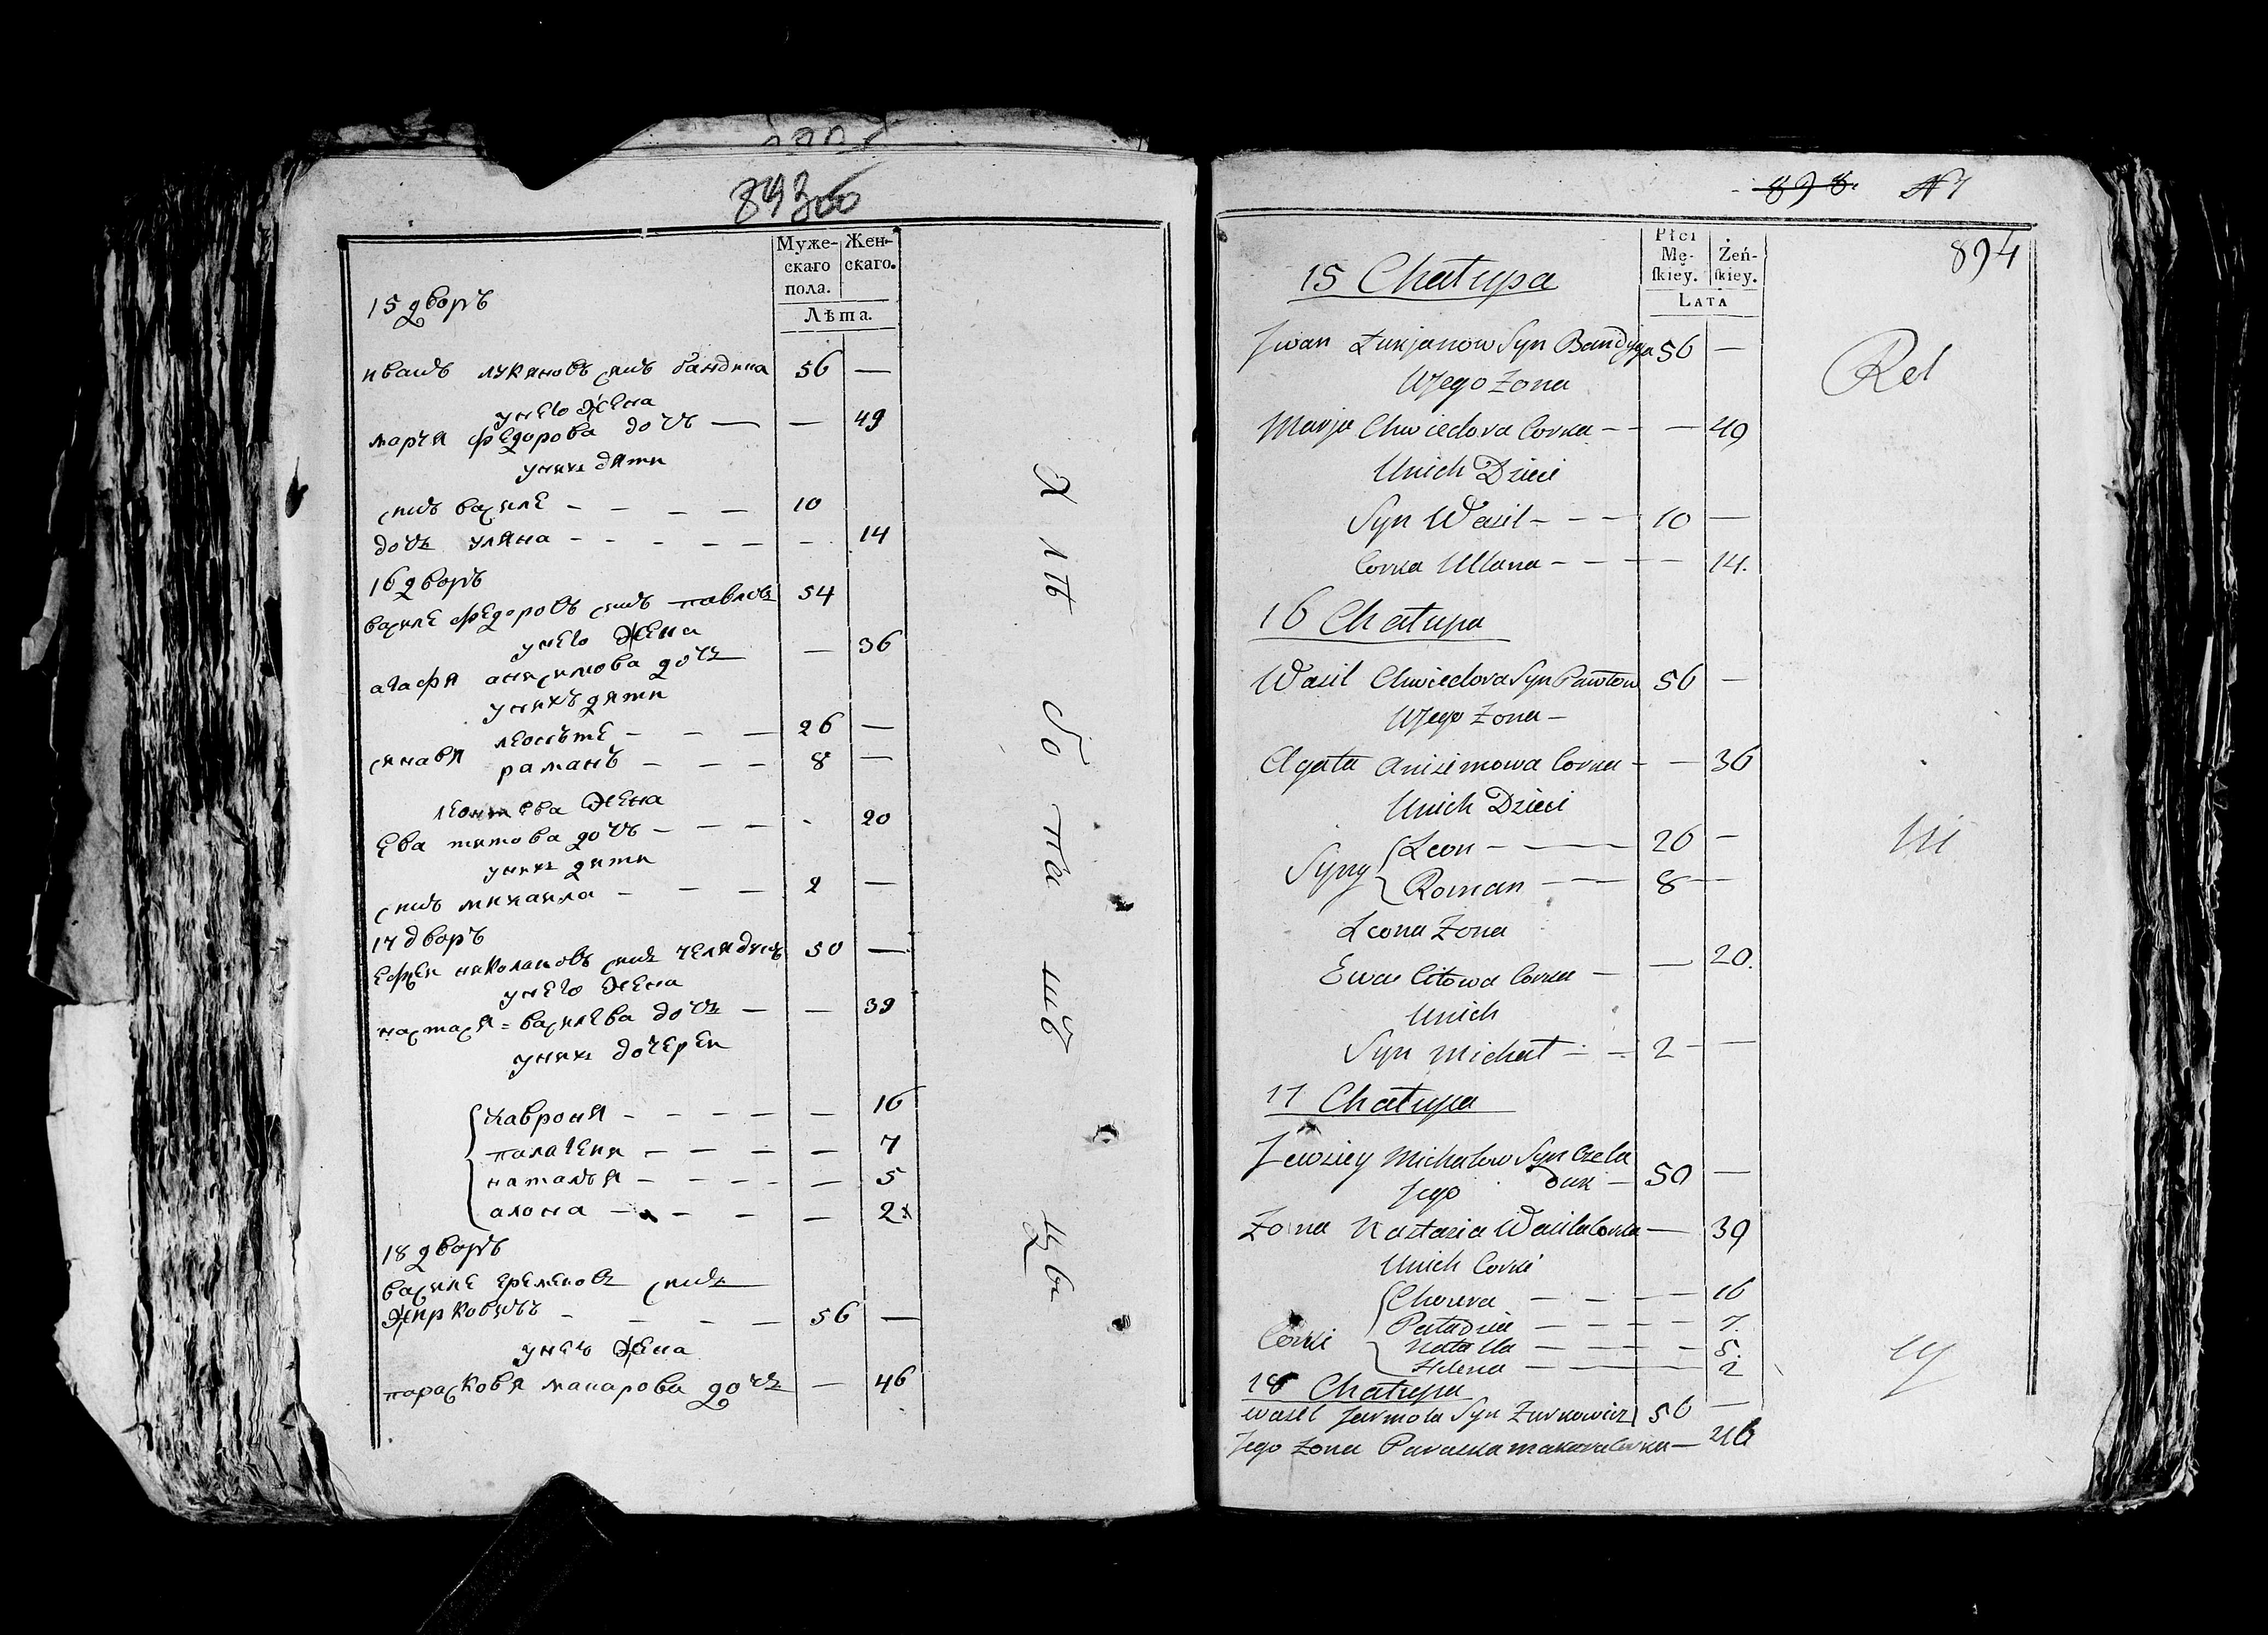 893
Муже-
скаго
пола.
Жен-
скаго.
Лѣта.
15 дворъ
иванъ лукяновъ сынъ бандика 56 —
у него жена
марья федорова дочъ — — 49
у нихъ дяти
синъ василе - - - - 10
дочъ уляна - - - - - - 14
16 дворъ
василе федоровъ сынъ павловъ 54
у него жена
агафя анисимова дочъ — 36
у нихъ дяти
синавя
леонъте - - - 26 —
раманъ - - - 8 —
жена
ева титова дочъ - - - - 20
у нихъ дяти
синъ михаила - - - 2 —
17 дворъ
николаювъ синъ 50 —
у него жена
настася = васильева дочъ — — 39
у нихъ дочереи
хавроня - - - - — 16
палагеия - - - - — 7
наталья - - - - — 5
алона - - - - — 2
18 дворъ
василе еремеювъ синъ
жирковичъ - - - - 56 —
у него жена
парасковя макарова дочъ — 46
894
Płci
Mę-
ſkiey.
Żeń-
ſkiey.
Lata
15 Chałupa
Jwan Łukjanow Syn Bandyga 56 —
Ujego Zona
Marja Chwiedora Corka - - — 49
Unich Dzieci
Syn Wasil - - - 10 —
Corka Ullana - - - - 14.
16 Chałupa
Wasil Chwiedora Syn Pawłow 56 —
Ujego Zona -
Agata Anisimowa Corka - — 36
Unich Dzieci
Syny
Leon - - - 26 —
Roman - - - 8 —
Leona Zona
Ewa Citowa Corka - — 20.
Unich
Syn Michał - - 2 - —
17 Chałupa
Michałow Syn Czela
Jego duk - 50 —
Zona Nastazia Wasila Corka — 39
Unich Corki
Corki
- - - - 16
- - - - 7.
Natalla - - - - 5.
Helena - - - 2
18 Chałupa
Wasil Jarmoła Syn Zurkowicz 56 —
Jego Zona Paraska Makara Corka — 46